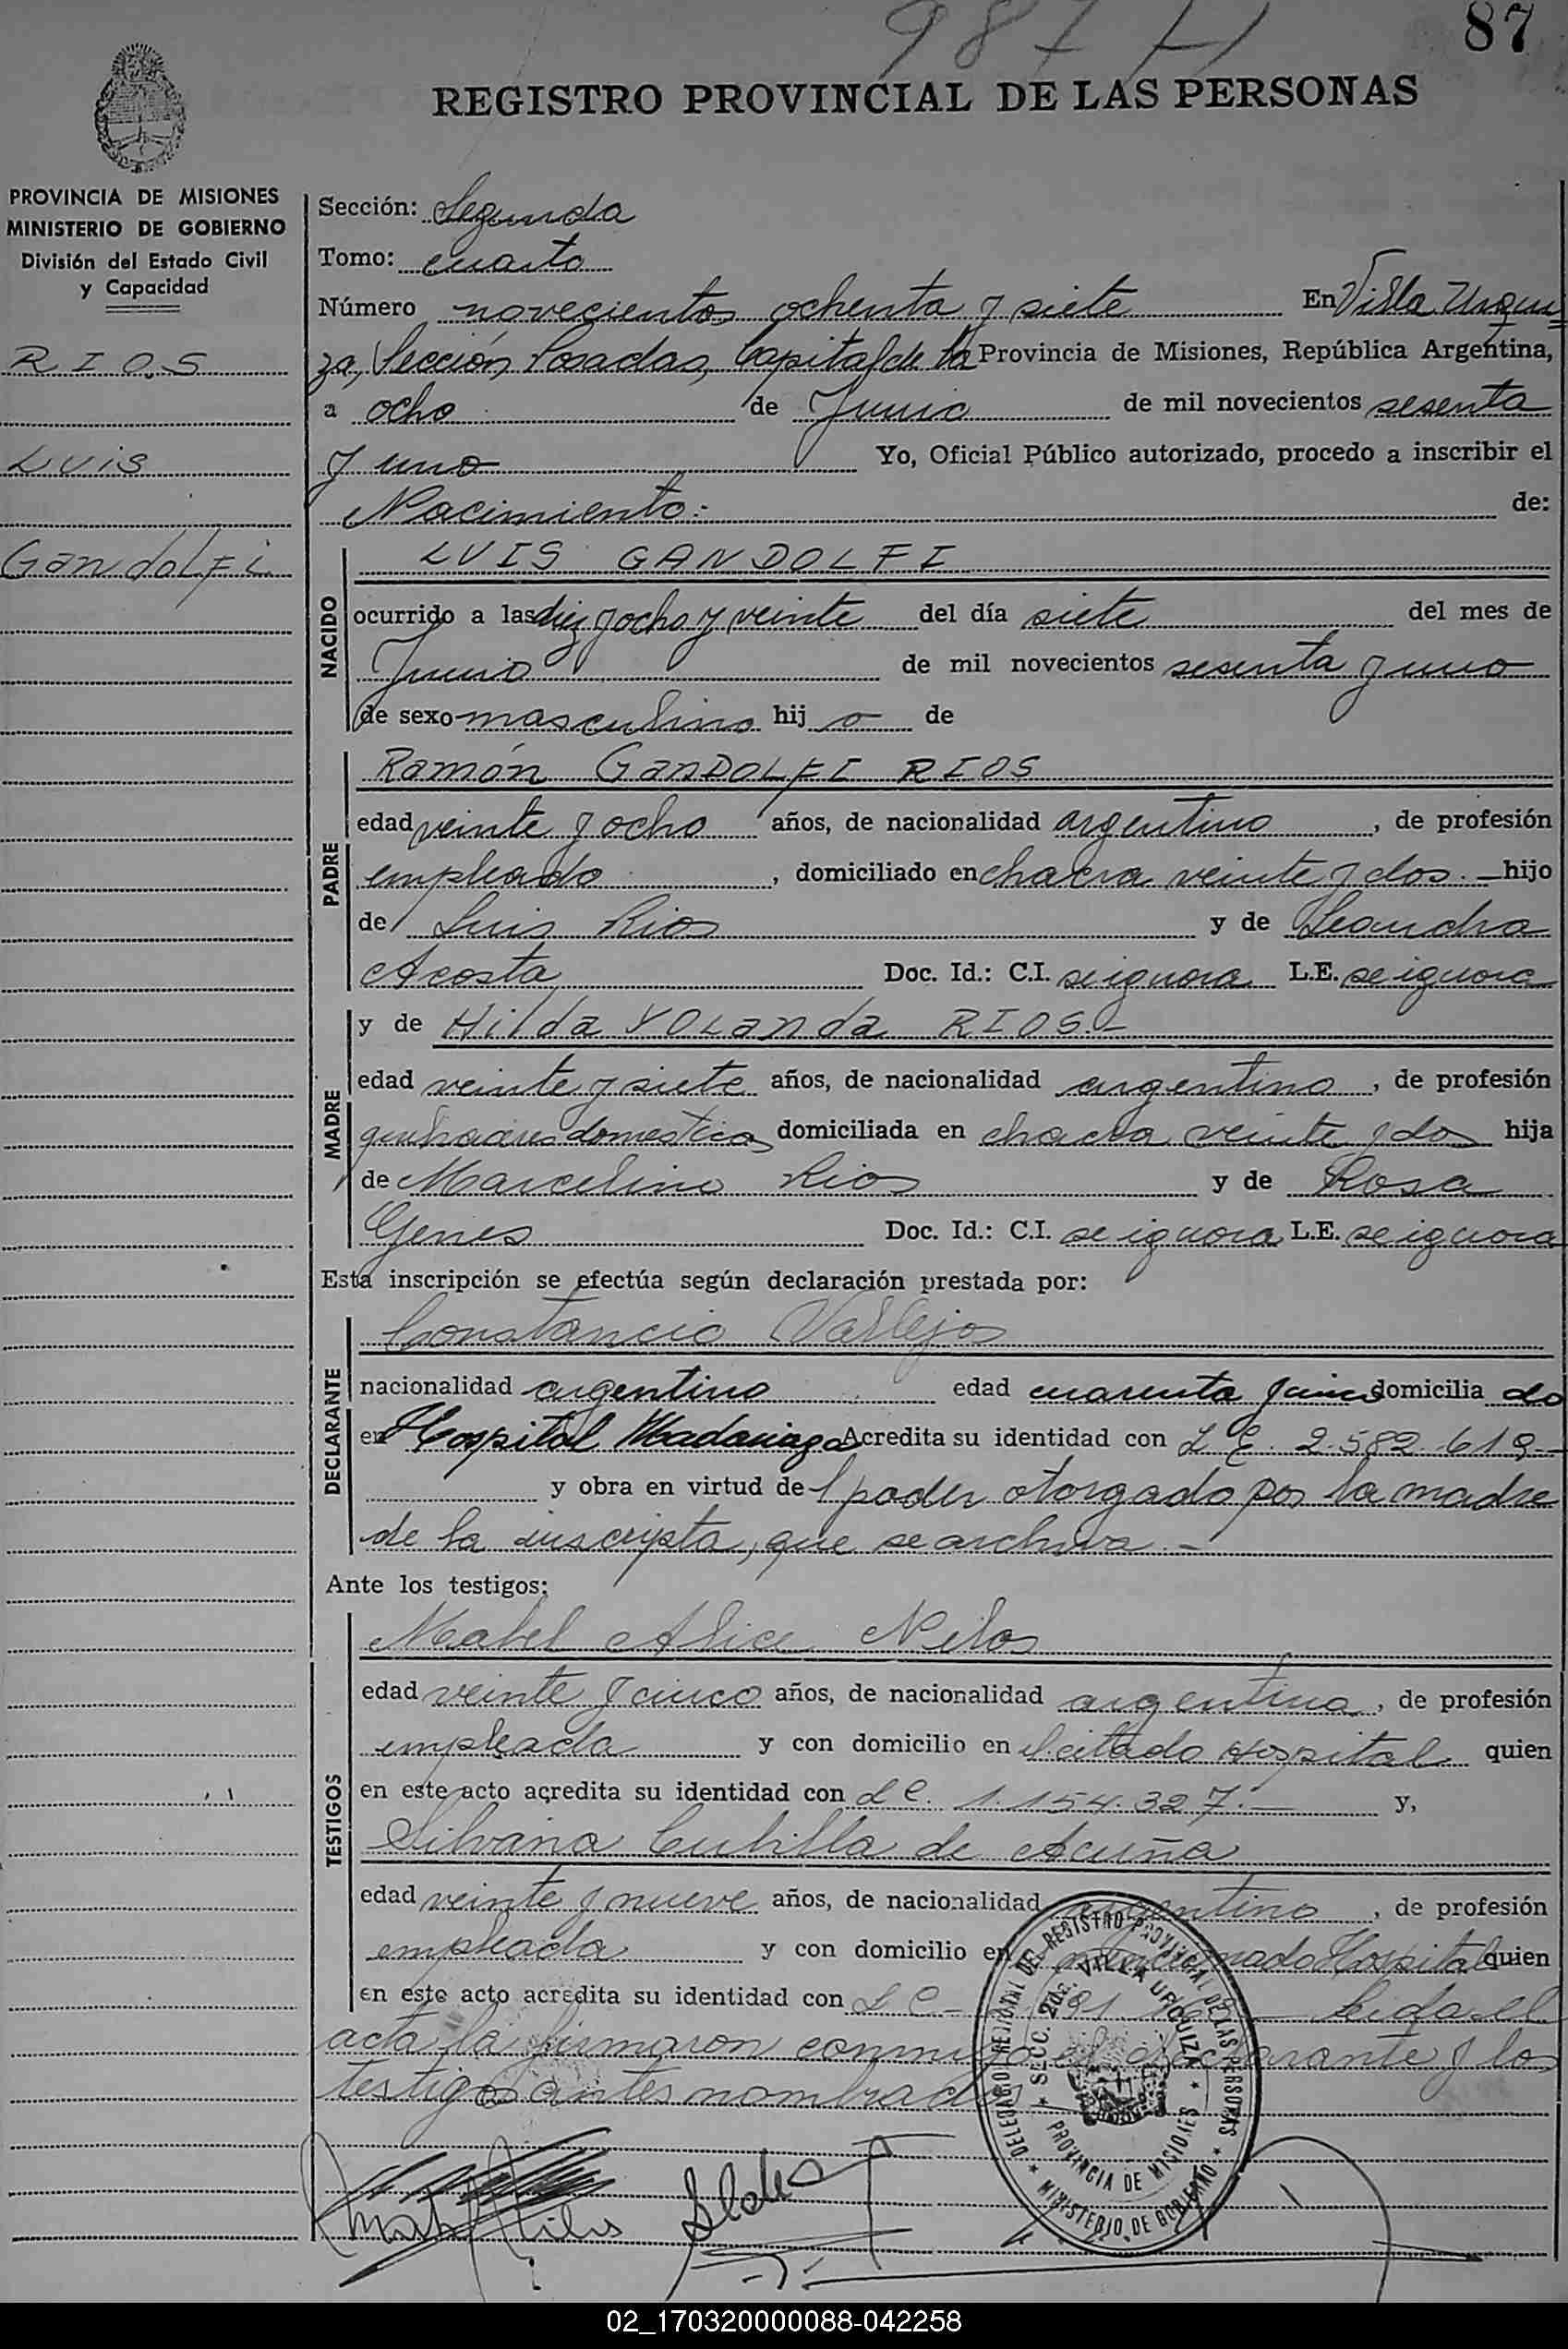 987 H
87
REGISTRO PROVINCIAL DE LAS PERSONAS
PROVINCIA DE MISIONES
MINISTERIO DE GOBIERNO
División del Estado Civil
y Capacidad
RIOS
Luis
Gandolfi
Sección: Segunda
Tomo: cuarto
Número novecientos ochenta y siete En Villa Urqui=
za, Sección Posadas, Capital de la Provincia de Misiones, República Argentina,
a ocho de Junio de mil novecientos sesenta
y uno Yo, Oficial Público autorizado, procedo a inscribir el
Nacimiento: de:
NACIDO
LUIS GANDOLFI
ocurrido a las diez y ocho y veinte del día siete del mes de
Junio de mil novecientos sesenta y uno
de sexo masculino hij o de
PADRE
Ramón GANDOLFI RIOS
edad veinte y ocho años, de nacionalidad argentino, de profesión
empleado, domiciliado en chacra veinte y dos.— hijo
de Luis Rios y de Leandra
Acosta Doc. Id.: C.I. se ignora L.E. se ignora
MADRE
y de Hilda YOLanda RIOS.-
edad veinte y siete años, de nacionalidad argentina, de profesión
quehaceres domesticos domiciliada en chacra veinte y dos hija
de Marcelino Rios y de Rosa
Genes Doc. Id.: C.I. se ignora L.E. se ignora
Esta inscripción se efectúa según declaración prestada por:
DECLARANTE
Constancio Vallejos
nacionalidad argentino edad cuarenta y domicilia do
en Hospital Madariaga Acredita su identidad con L E. 2.582.619—
y obra en virtud de l poder otorgado por la madre
de la inscripta, que se archiva.-
Ante los testigos:
TESTIGOS
Mabel Alice
edad veinte y cinco años, de nacionalidad argentina, de profesión
empleada y con domicilio en el citado Hospital quien
en este acto acredita su identidad con L C. 1.154.327.— y,
Silvana Cubilla de Acuña
edad veinte y nueve años, de nacionalidad argentina, de profesión
empleada y con domicilio en Hospital quien
en este acto acredita su identidad con L C— Leida el
acta la firmaron conmigo el declarante y los
testigos antes nombrados
DELEGACION REGIONAL DEL REGISTRO PROVINCIAL DE LAS PERSONAS
* MINISTERIO DE GOBIERNO *
* SECC. 2da. VILLA URQUIZA *
PROVINCIA DE MISIONES
02_170320000088-042258